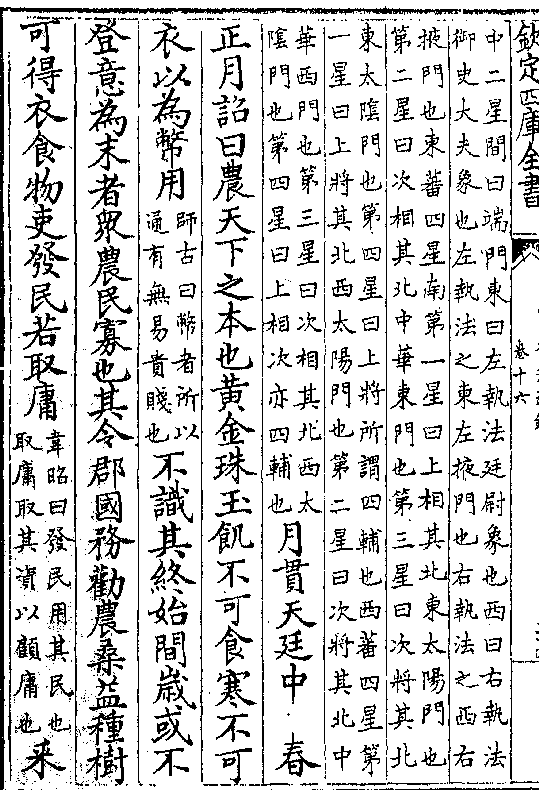 欽定四庫全書
卷十六
中二星間曰端門東曰左執法廷尉象也西曰右執法
御史大夫象也左執法之東左掖門也右執法之西右
掖門也東蕃四星南第一星曰上相其北東太陽門也
第二星曰次相其北中華東門也第三星曰次將其北
東太隂門也第四星曰上將所謂四輔也西蕃四星第
一星曰上將其北西太陽門也第二星曰次將其北中
華西門也第三星曰次相其北西太
隂門也第四星曰上相次亦四輔也
月貫天廷中 春
正月詔曰農天下之本也黄金珠玉飢不可食寒不可
衣以為幣用
師古曰幣者所以
通有無易貴賤也
不識其終始間嵗或不
登意為末者衆農民寡也其令郡國務勸農桑益種樹
可得衣食物吏發民若取庸
韋昭曰發民用其民也
取庸取其資以顧庸也
来